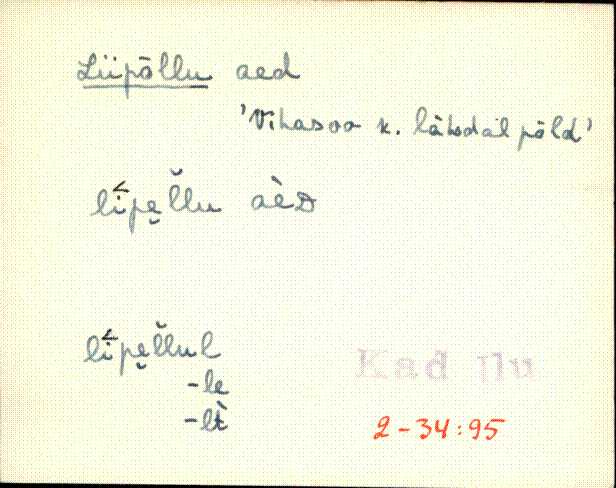 Liipõllu aed
'Vihasoo k. lähedal põld'
li̬pe̮l̆lu aèD
li̬pe̮l̆lul
-le
-lt̀
Kad Ilu
2-34:95